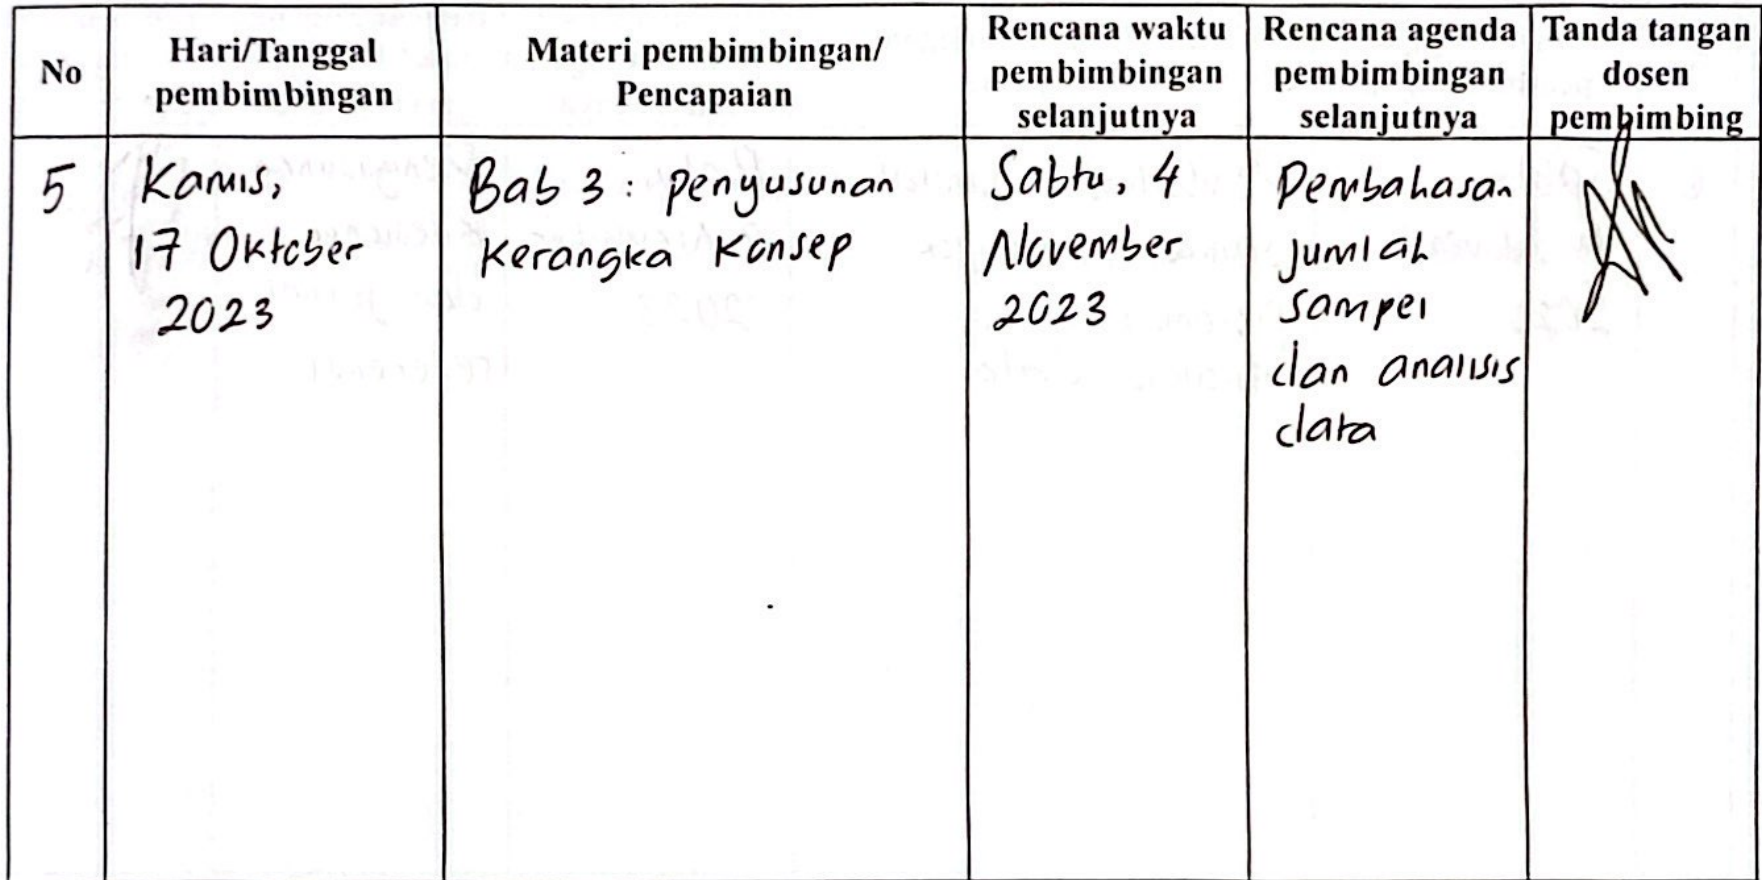 No
Hari/Tanggal
pembimbingan
Materi pembimbingan/
Pencapaian
Rencana waktu
pembimbingan
selanjutnya
Rencana agenda
pembimbingan
selanjutnya
Tanda tangan
dosen
pembimbing
5
Kamis,
17 Oktober
2023
Bab 3 : Penyusunan
Kerangka Konsep
Sabtu, 4
November
2023
Pembahasan
jumlah
sampel
dan analisis
data